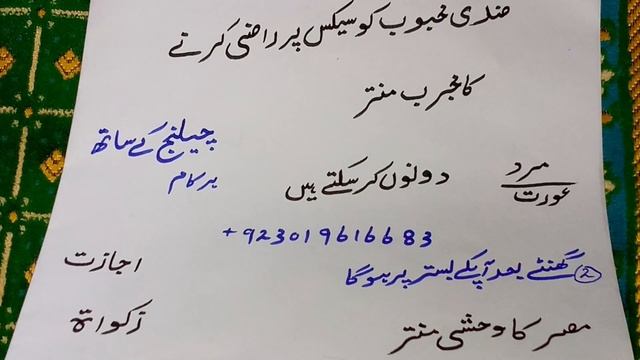 ضدی محبوب کو سیکس پر راضی کرنے
کا مجرب منتر
چیلنج کے ساتھ
ہر کام
مرد
عورت
دونوں کر سکتے ہیں
+923019616683
2 گھنٹے بعد آپکے بستر پر ہو گا
اجازت
زکواۃ
مصر کا وحشی منتر